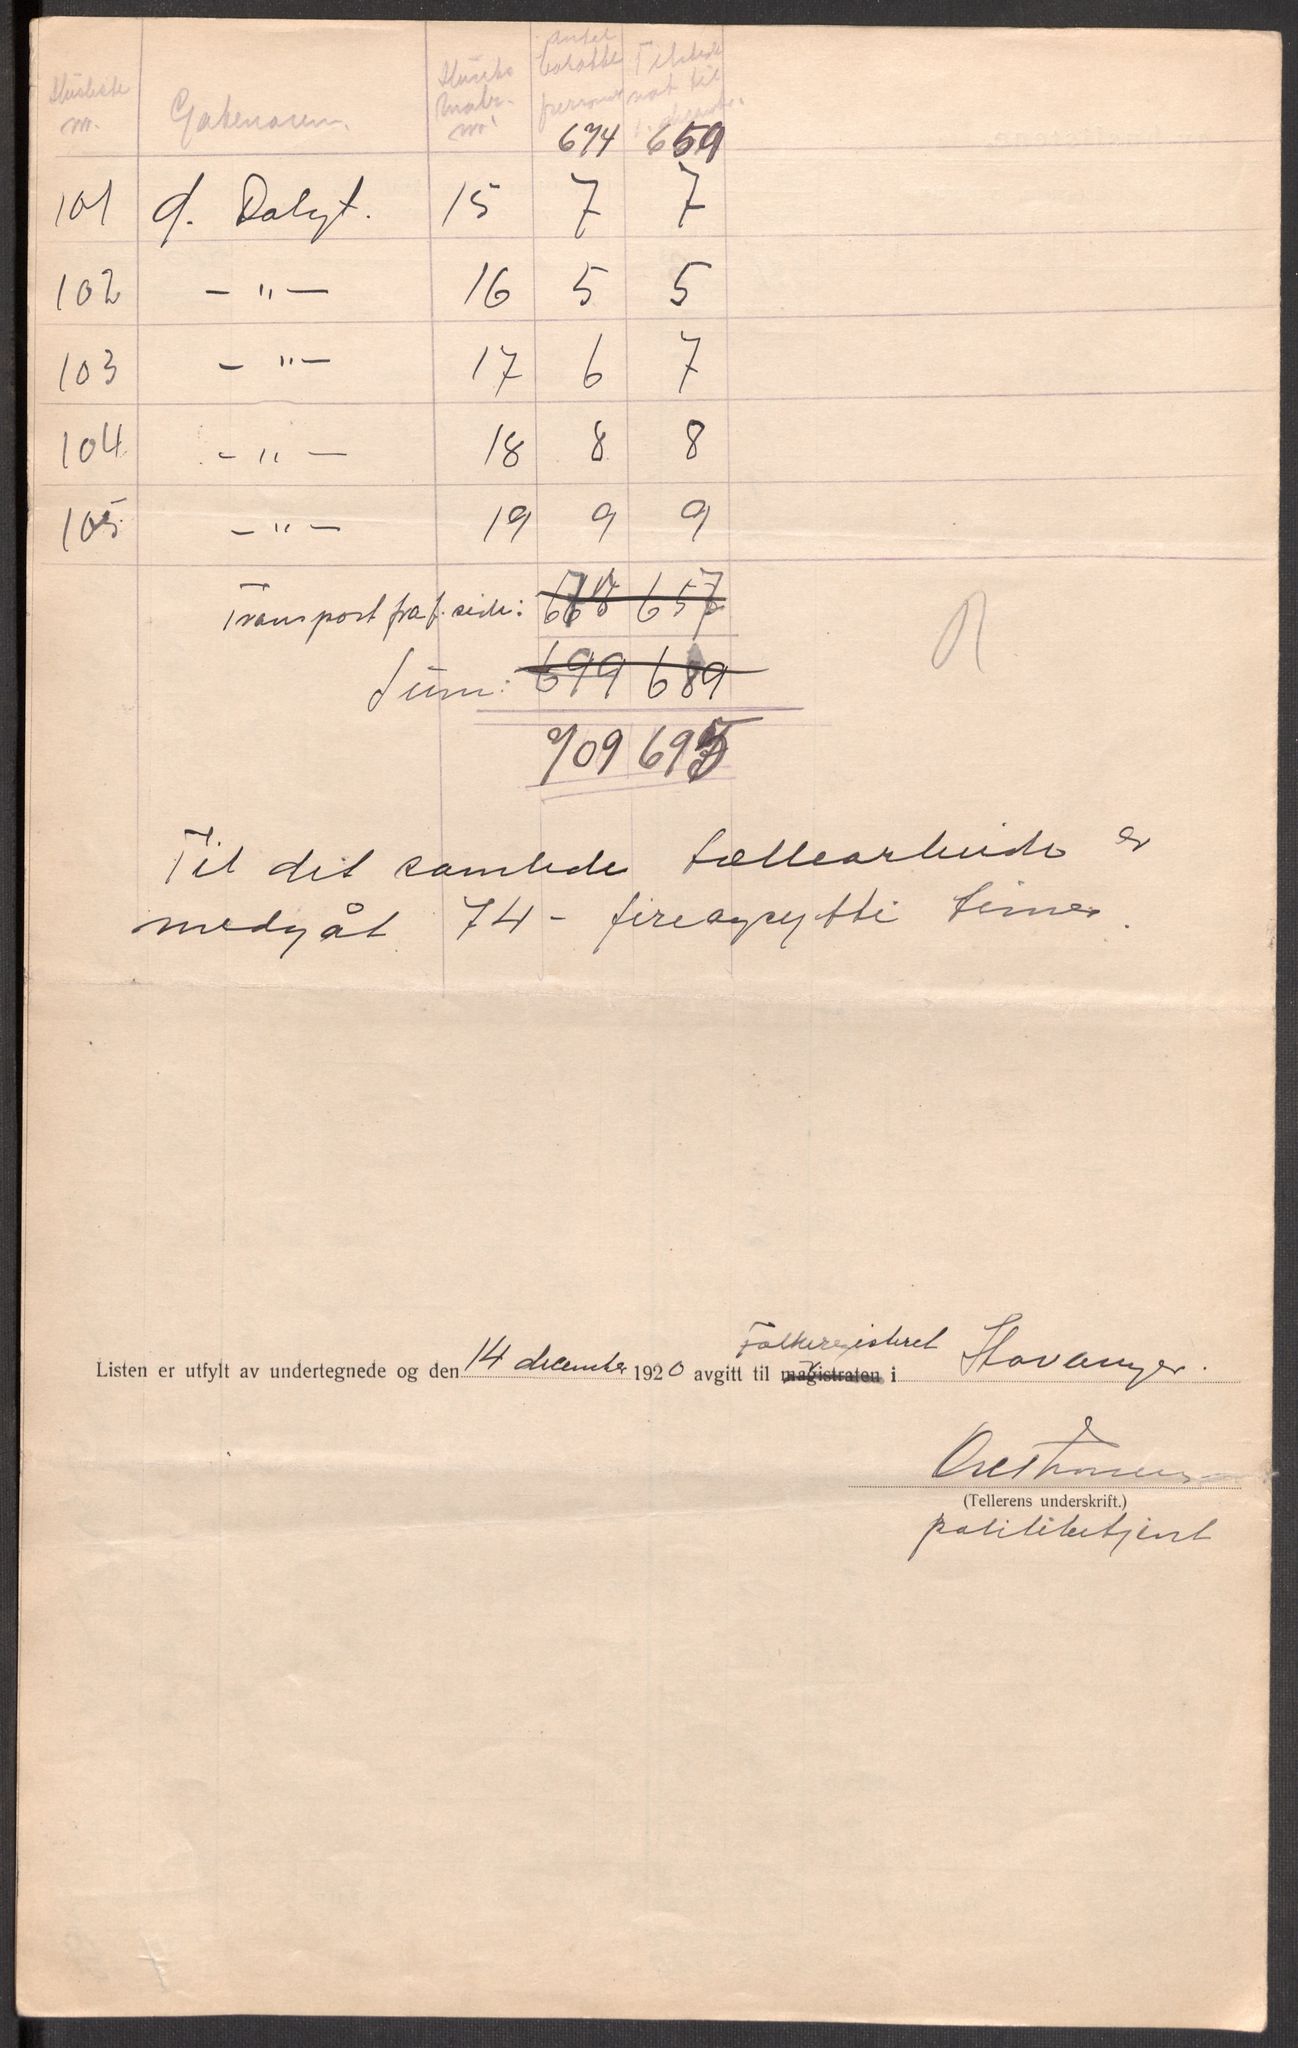 Husliste nr. Gatenavn. Husets matr. nr. Antal bosatte personer Tilstede nat til 1. december
674 659
101 d. Dalgt. 15 7 7
102 — " — 16 5 5
103 — " — 17 6 7
104 — " — 18 8 8
105 — " — 19 9 9
Transport fra f. side: 657
Sum: 699 689
709 695
Til det samlede tællearbeide er
medgåt 74 - fireogsytti timer.
Folkeregisteret
Listen er utfylt av undertegnede og den 14 december 1920 avgitt til magistraten i Stavanger.
(Tellerens underskrift.)
politibetjent